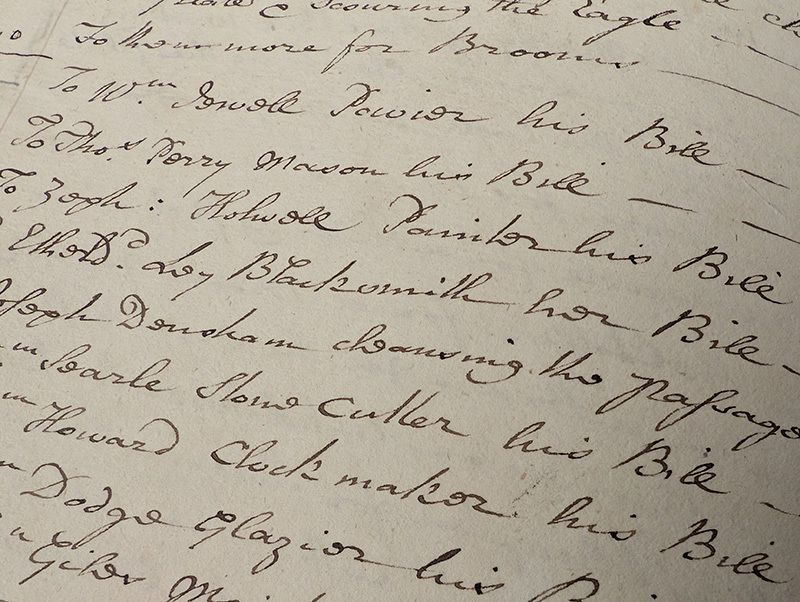 & Scouring the Eagle
To them more for Brooms
To Wm. Jewell Pavier his Bill
To Thos. Perry Mason his Bill
To Zeph: Holwell Painter his Bill
Etheld. Ley Blacksmith her Bill
Joseph Densham cleansing the passage
m Searle Stone Cutter his Bill
m Howard Clockmaker his Bill
m Dodge Glazier his
Giles